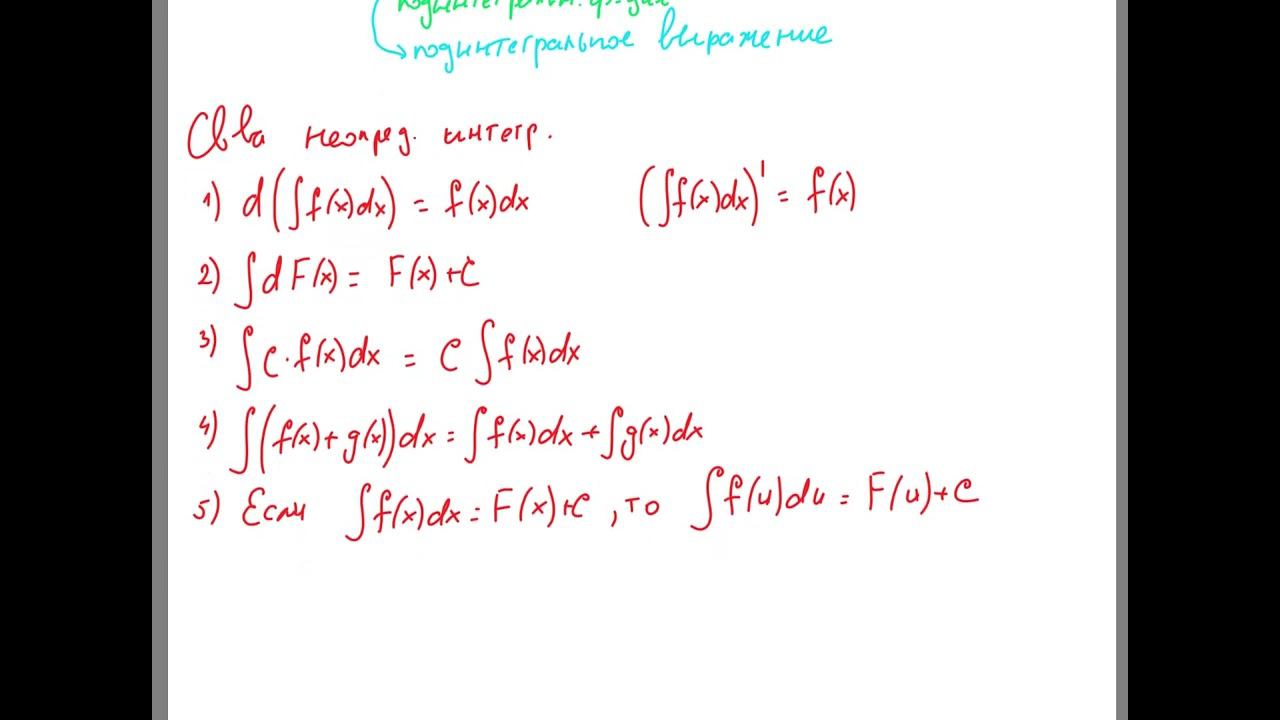 подинтегральное выражение
Св-ва неопред. интегр.
1) d(∫f(x)dx) = f(x)dx (∫f(x)dx)' = f(x)
2) ∫dF(x) = F(x)+C
3) ∫C·f(x)dx = C∫f(x)dx
4) ∫(f(x)+g(x))dx = ∫f(x)dx+∫g(x)dx
5) Если ∫f(x)dx = F(x)+C, то ∫f(u)du = F(u)+C